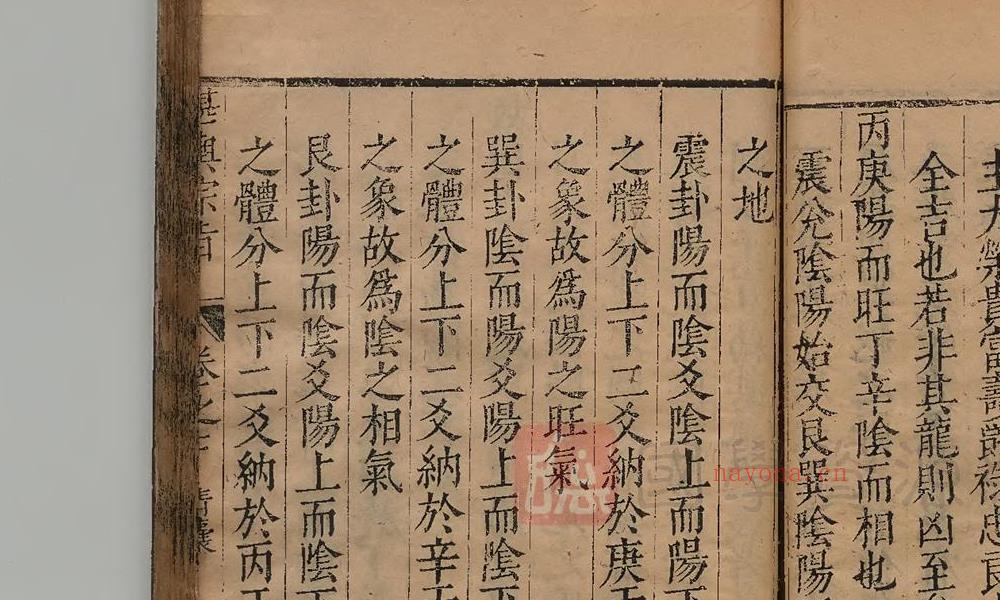 全吉也若非其龍則凶至
丙庚陽而旺丁辛陰而相也
震兌陰陽始交艮巽陰陽
之地
震卦陽而陰爻陰上而陽下
之體分上下二爻納於庚
之象故爲陽之旺氣
巽卦陰而陽爻陽上而陰下
之體分上下二爻納於辛
之象故爲陰之相氣
艮卦陽而陰爻陽上而陰下
之體分上下二爻納於丙
國學
nayona.cn